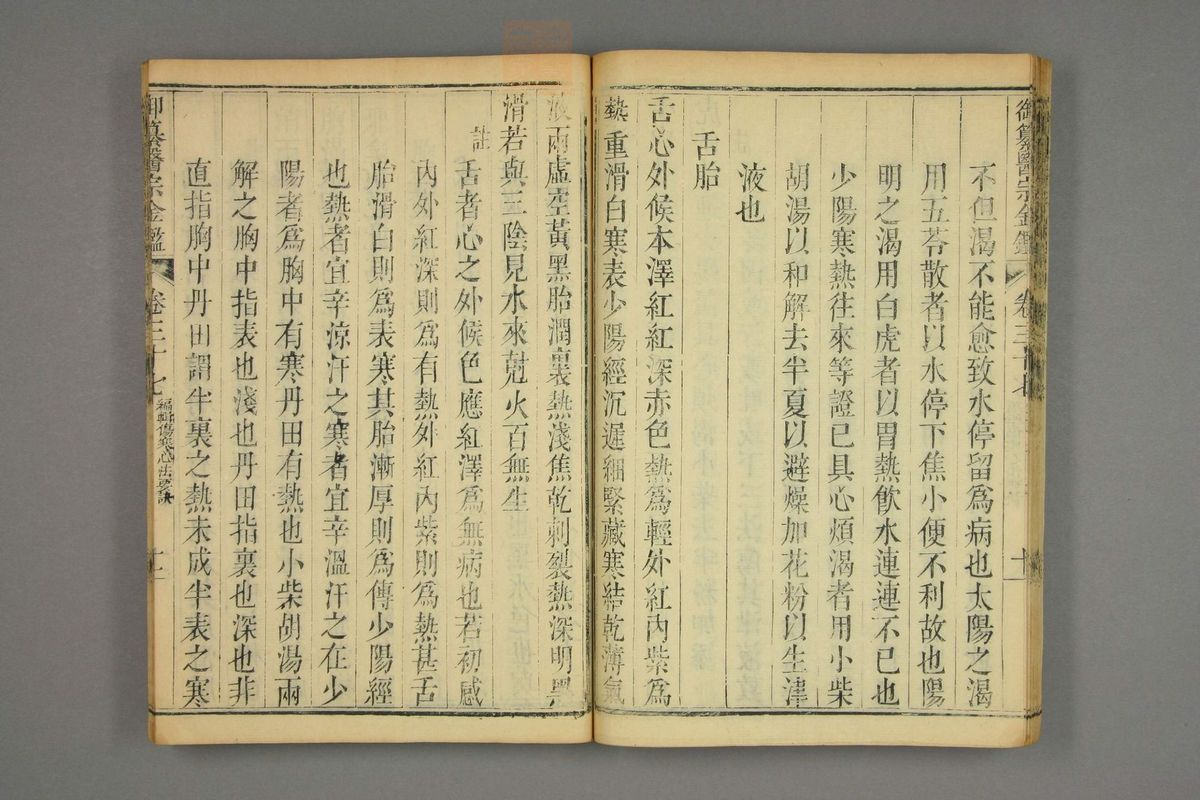 御纂醫宗金鑑 卷三十七 十一
不但渴不能愈致水停留爲病也太陽之渴
用五苓散者以水停下焦小便不利故也陽
明之渴用白虎者以胃熱飲水連連不已也
少陽寒熱往來等證已具心煩渴者用小柴
胡湯以和解去半夏以避燥加花粉以生津
液也
舌胎
舌心外候本澤紅紅深赤色熱爲輕外紅內紫爲
熱重滑白寒表少陽經沉遲細緊藏寒結乾薄氣
液兩虛空黃黑胎潤裏熱淺焦乾刺裂熱深明黑
滑若與三陰見水來尅火百無生
註
舌者心之外候色應紅澤爲無病也若初感
內外紅深則爲有熱外紅內紫則爲熱甚舌
胎滑白則爲表寒其胎漸厚則爲傳少陽經
也熱者宜辛涼汗之寒者宜辛溫汗之在少
陽者爲胸中有寒丹田有熱也小柴胡湯兩
解之胸中指表也淺也丹田指裏也深也非
直指胸中丹田謂半裏之熱未成半表之寒
御纂醫宗金鑑 卷三十七 編輯傷寒心法要訣 十一